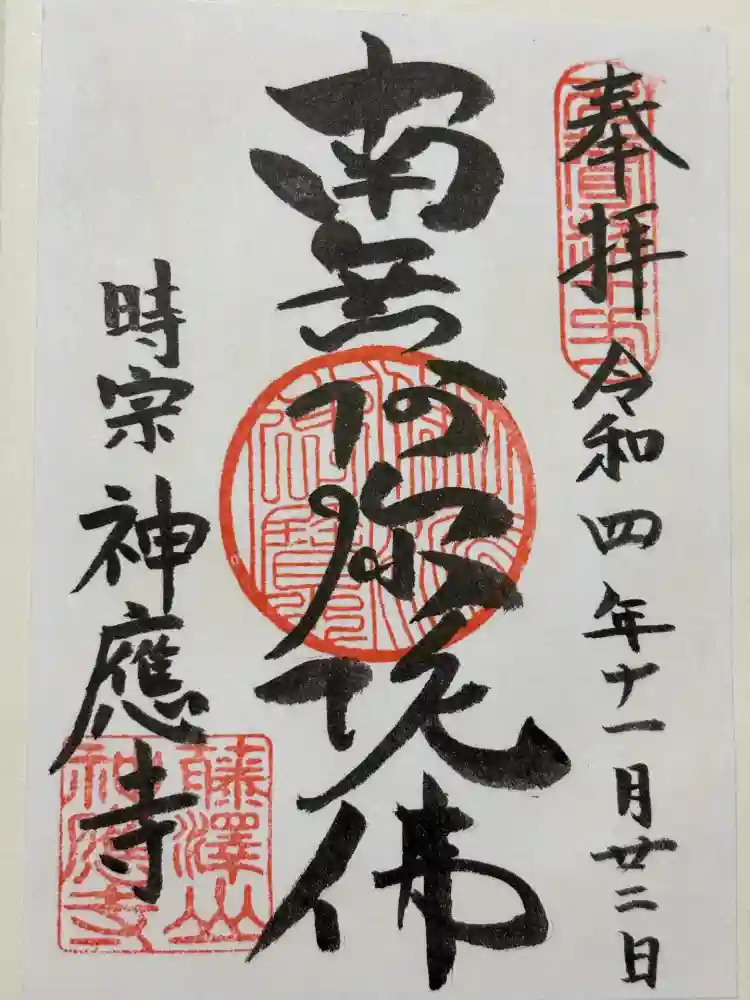 奉拝
令和四年十一月廿二日
南無阿弥陀佛
時宗 神應寺
藤澤山
神應寺